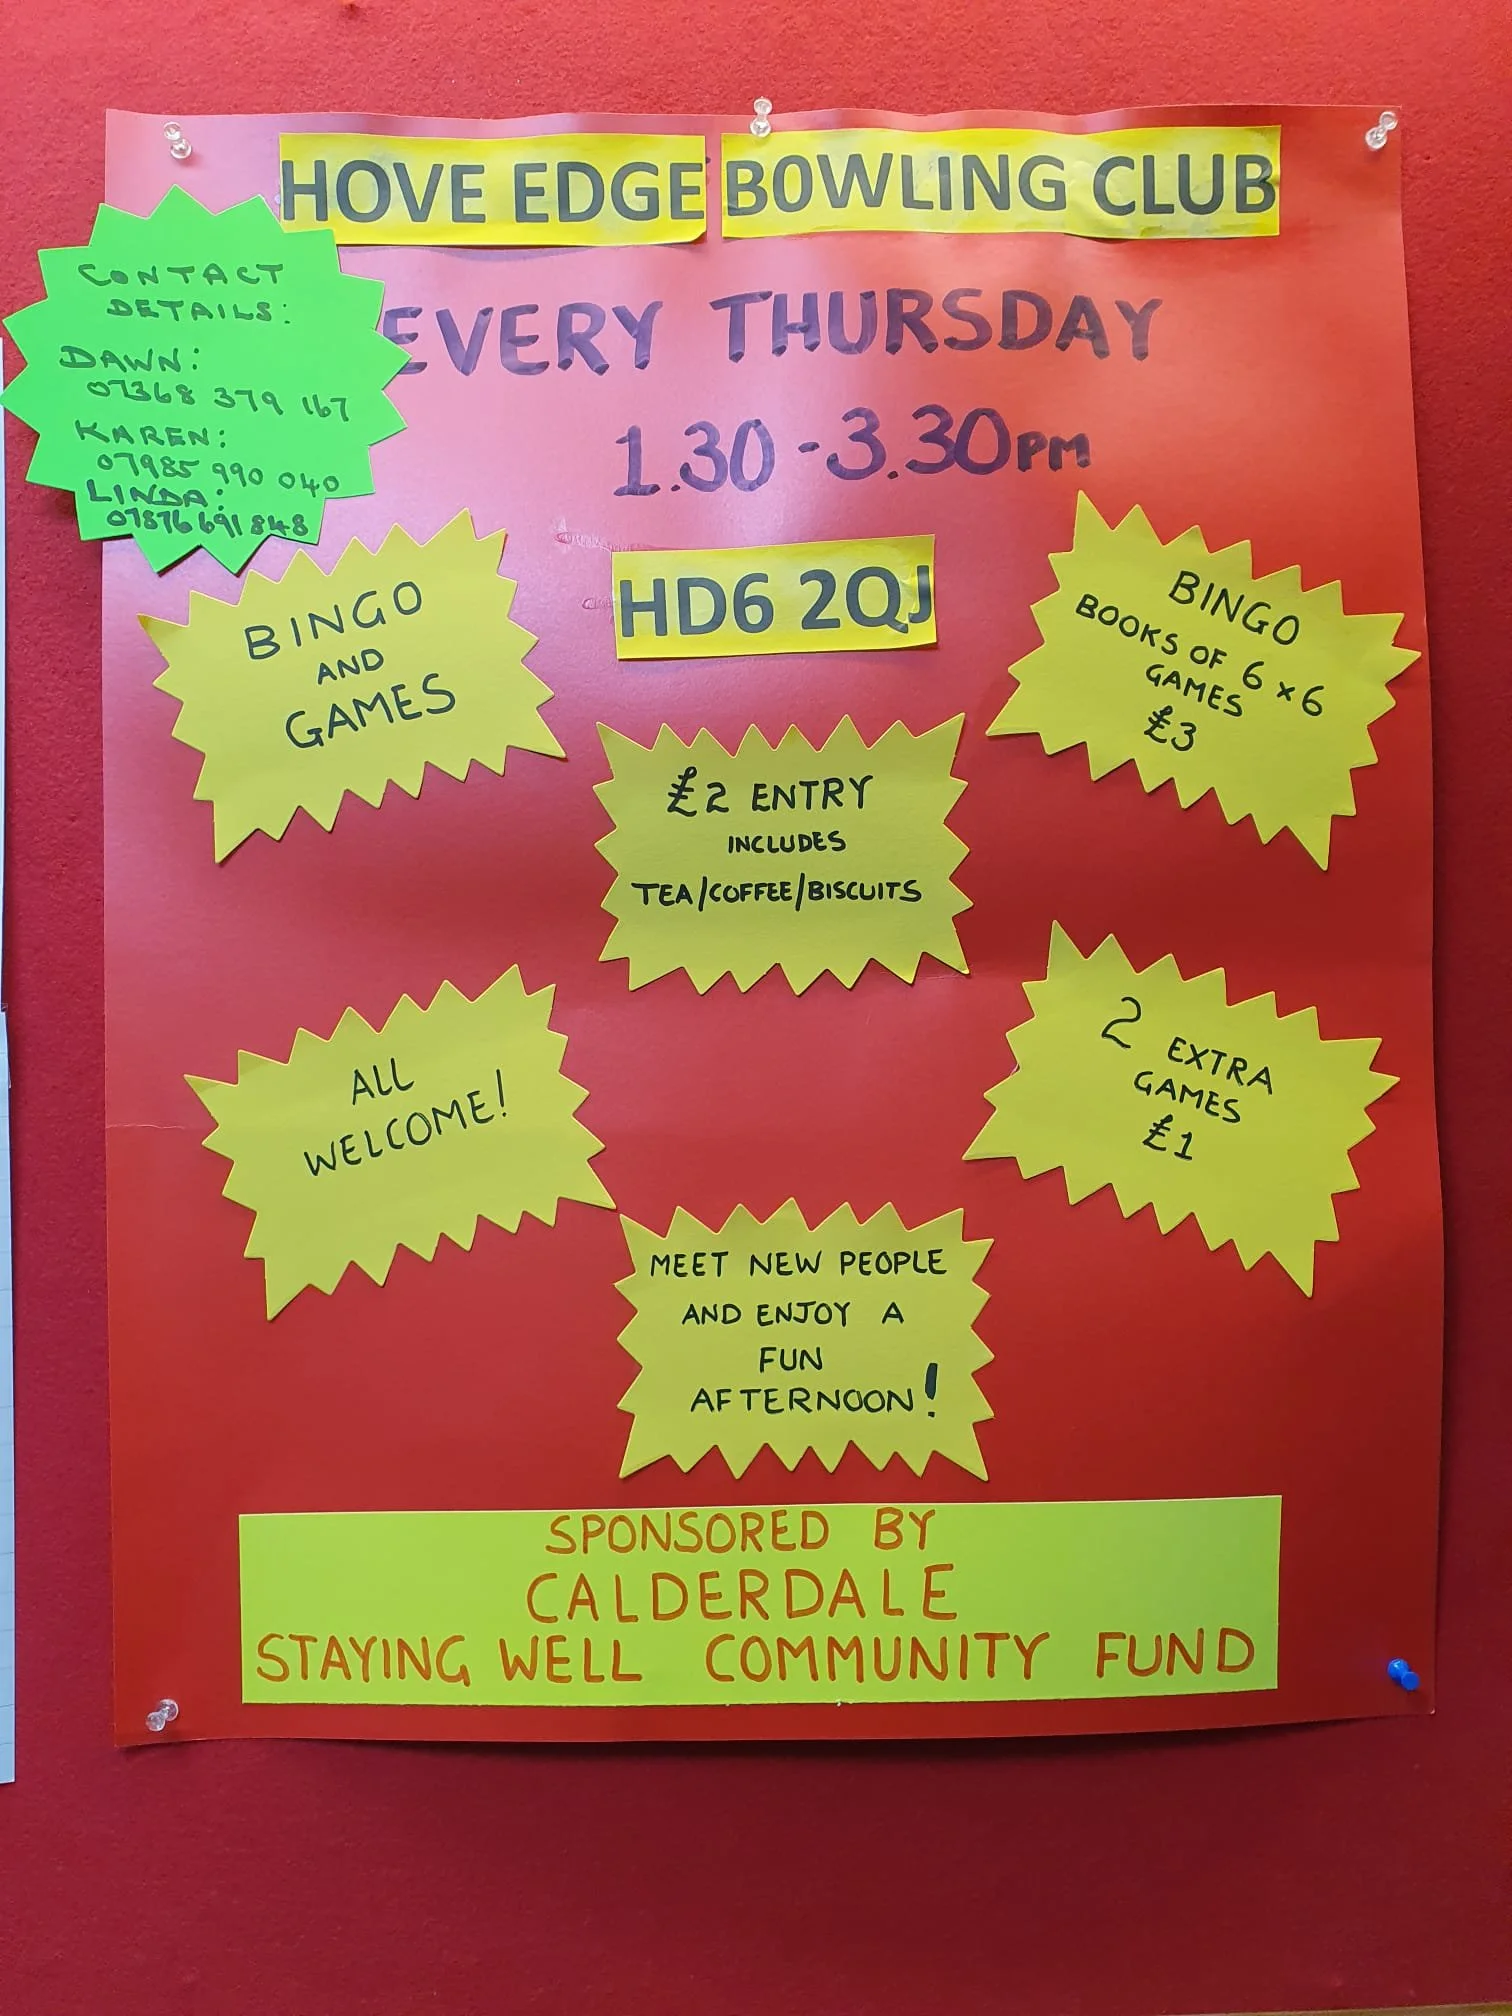 HOVE EDGE BOWLING CLUB
EVERY THURSDAY
1.30 - 3.30PM
HD6 2QJ
CONTACT
DETAILS:
DAWN:
07368 379 167
KAREN:
07985 990 040
LINDA:
07876 691 848
BINGO
AND
GAMES
BINGO
BOOKS OF 6 x 6
GAMES
£3
£2 ENTRY
INCLUDES
TEA/COFFEE/BISCUITS
ALL
WELCOME!
2 EXTRA
GAMES
£1
MEET NEW PEOPLE
AND ENJOY A
FUN
AFTERNOON!
SPONSORED BY
CALDERDALE
STAYING WELL COMMUNITY FUND